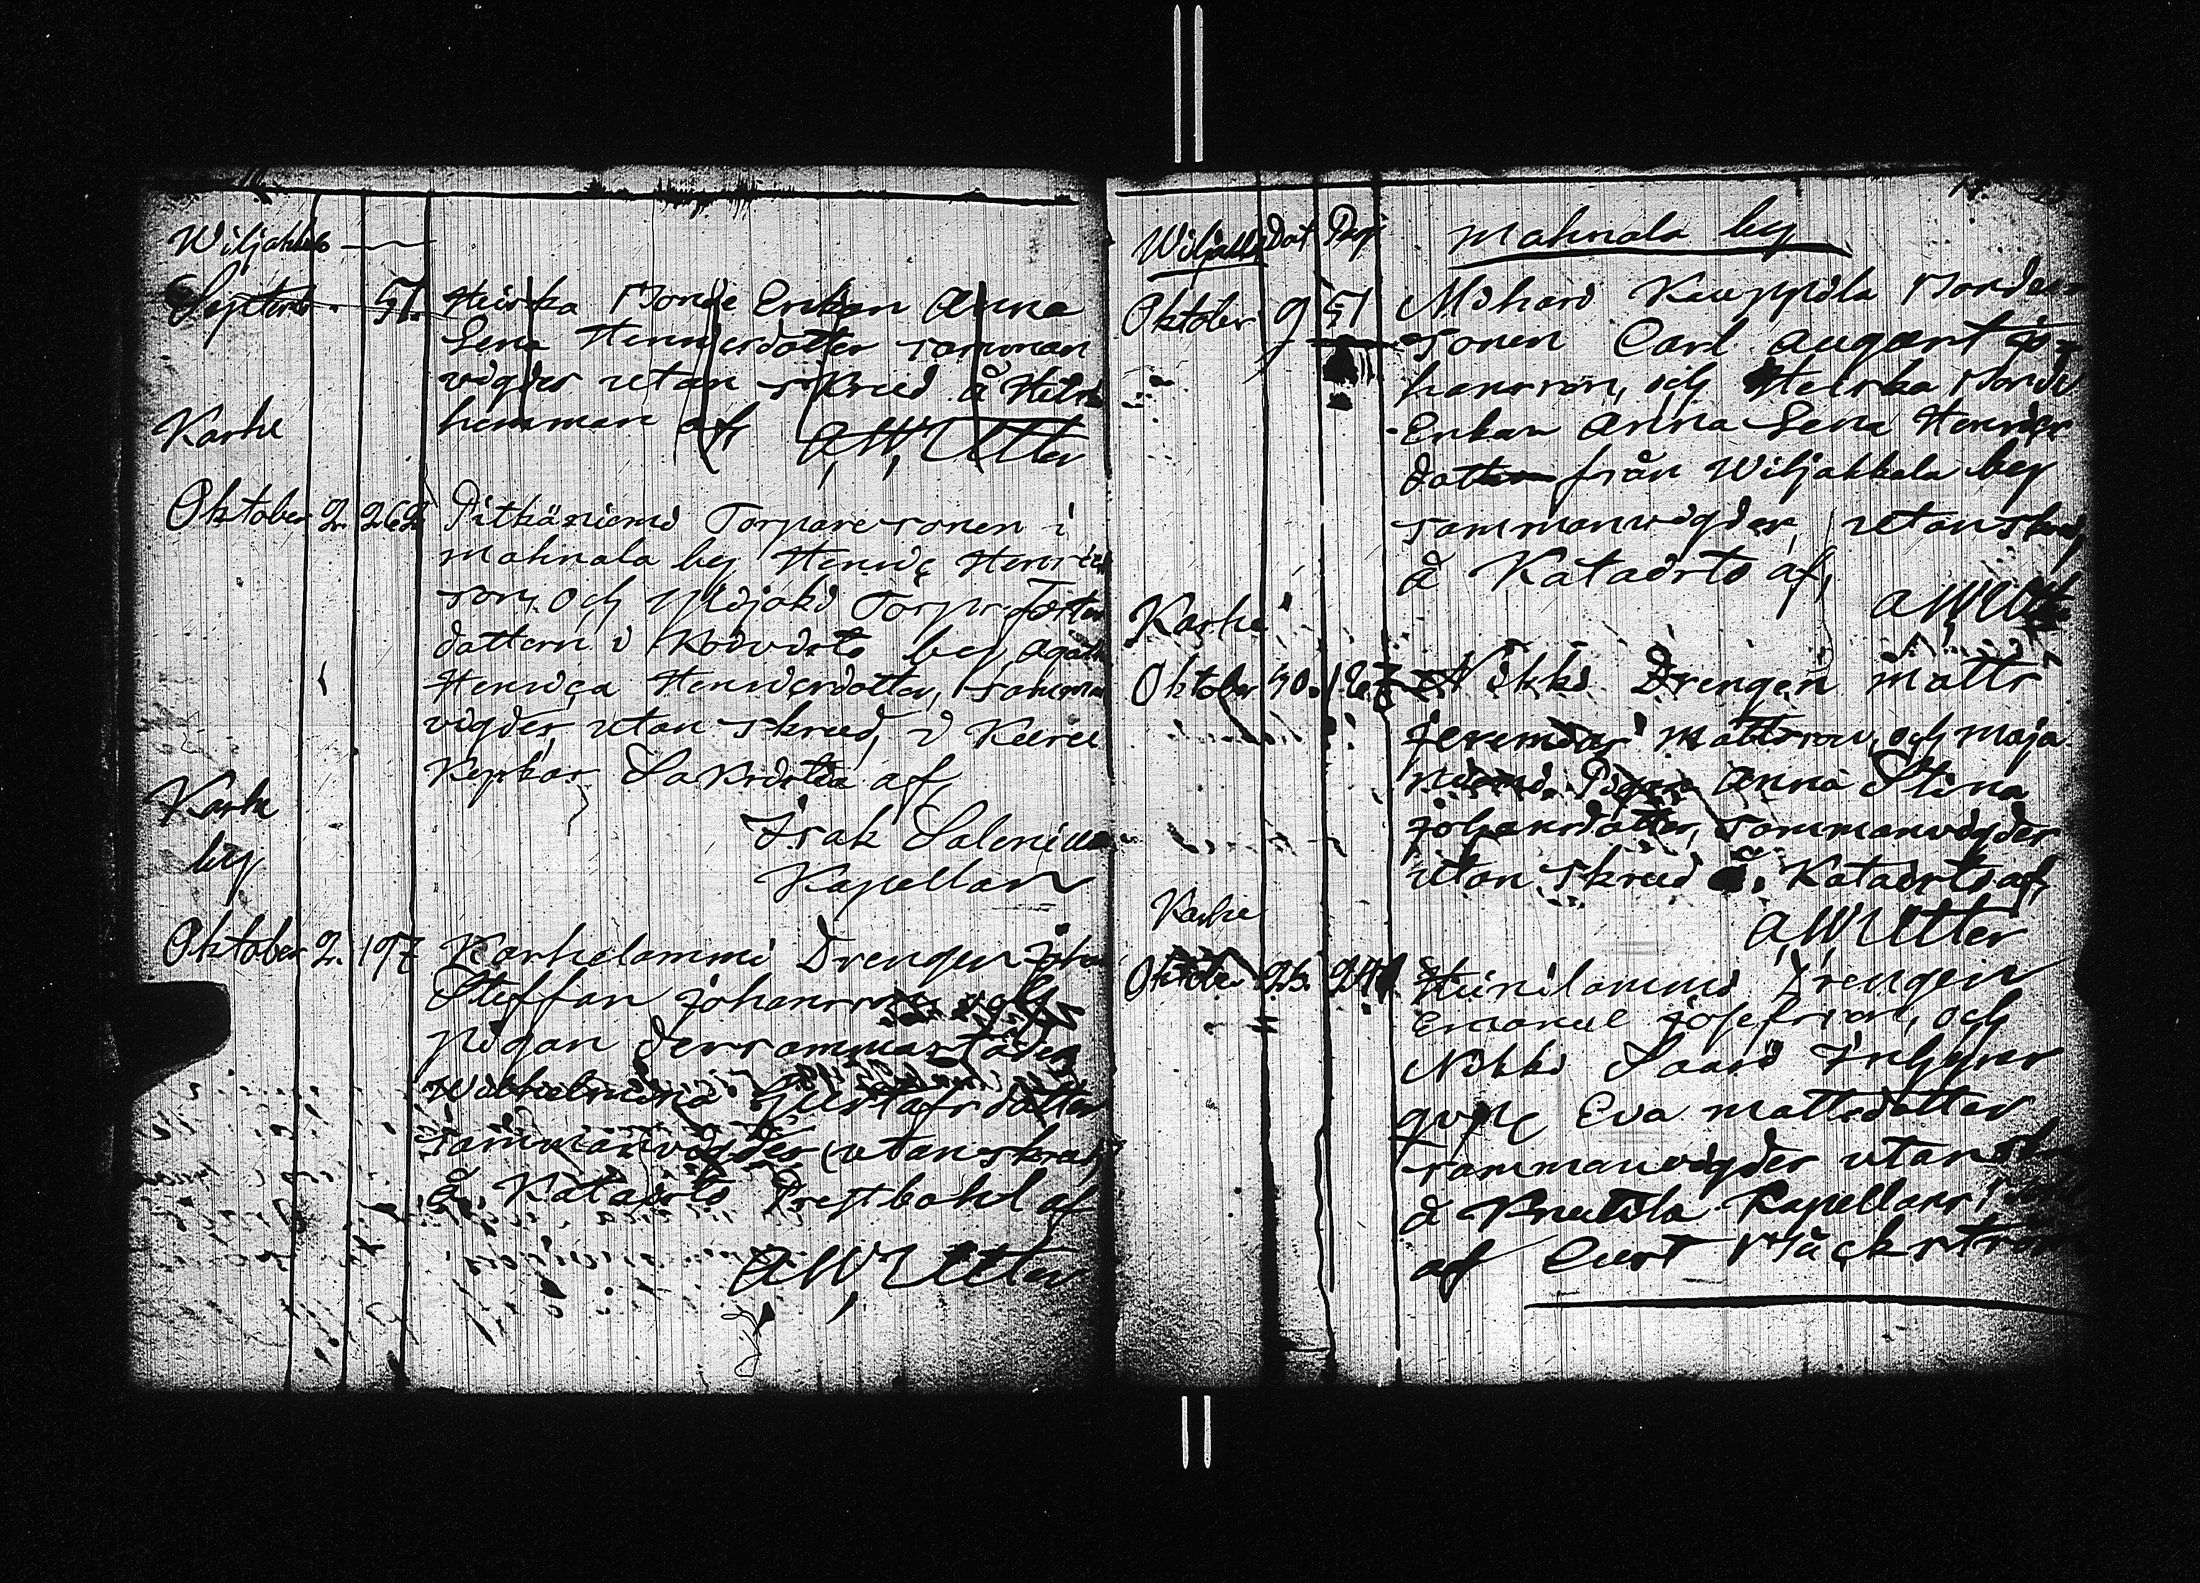 Wiljakkala
Septemb. 51. Heiska Bonde Enkan Anna
Lena Henricsdotter samman
vigdes utan skrud å Heiska
Karhe hemman af A, W, Utter
Oktober 2. 262 Pitkäniemi Torpare sonen i
Mahnala by Henric Henrics
son, och Ylijoki Torp. Foster
dottern i Koivisto by Agata
Henrica Henricsdotter, samman
vigdes, utan skrud, i Kuru
Kyrkas Sakristia af,
Karhe
by
Isak Salenius
Kapellan
Oktober 2. 197 Karhelammi Drengen Johan
Steffan Johansson och
pigan dersammastädes
Wilhelmina Gustafsdotter
sammanvigdes (utan skrud)
å Kataisto Prestbohl af
A W, Utter
Wiljakkala Dat Pag Mahnala by
Oktober 9 51 Mihari Kauppila Bonde
sonen Carl August Jo-
hansson, och Heiska Bonde
Enkan Anna Lena Henrics
dotter från Wiljakkala by
sammanvigdes, utan skrud,
å Kataisto af,
A W Utter
Karhe
Oktober 30. 187 Nikki Drengen Matts
Jeremias Mattsson, och Maja
niemi Pigan Anna Stina
Johansdotter, sammanvigdes
utan skrud å Kataisto af,
A, W Utter
Karhe
Oktober 23. 241 Heinilammi Drengen
Emanuel Josefsson, och
Nikki Saari Inhyses
qvin. Eva Mattsdotter
sammanvigdes utan skrud
å Knuutila Kapellans
af Curt Bäckström